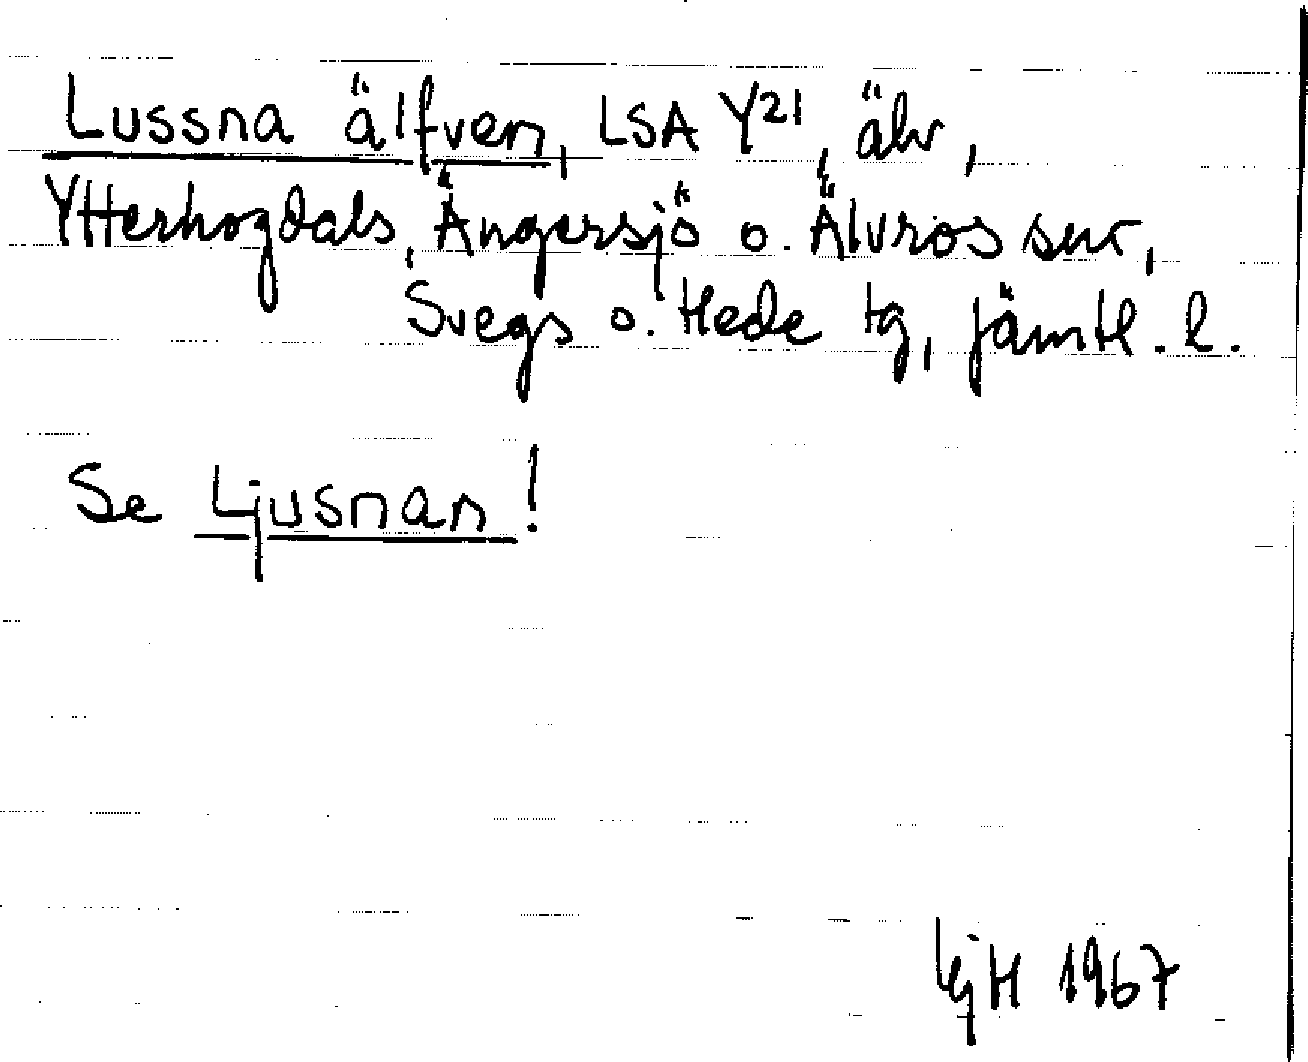 Lussna älfven, LSA Y21, älv,
Ytterhogdals, Ängersjö o. Älvros snr,
Svegs o. Hede tg, Jämtl. l.
Se Ljusnan!
LjH 1967